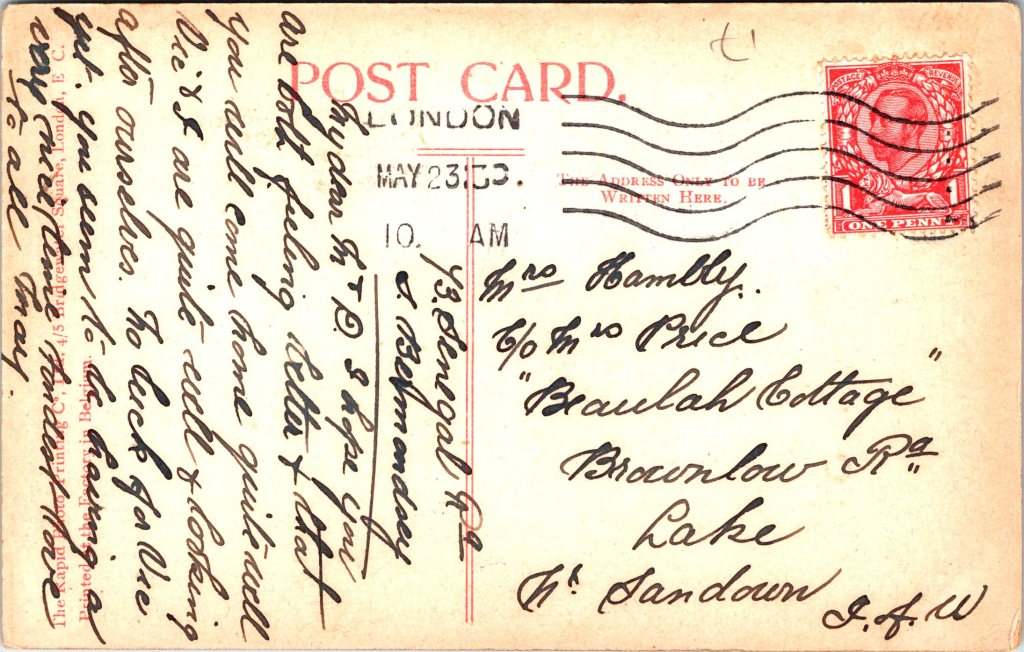 POST CARD.
LONDON
MAY 23
10. AM
POSTAGE REVENUE
ONE PENNY
THE ADDRESS ONLY TO BE
WRITTEN HERE.
43. Senegal Rd
S. Bermondsey
My dear I hope you
are both feeling better & that
you will come home quite well
Vic & I are quite well & looking
after ourselves. No luck for Vic
yet. you seem to be having a
very nice time fondest love
to all May.
Mrs Hambly.
C/o Mrs Price
"Beaulah Cottage"
Brownlow Rd
Lake
Nr Sandown
I.of.W
The Rapid Photo Printing Co, Ltd. 4/5 Bridgewater Square, London, E C.
Printed at the Factory in Belgium.